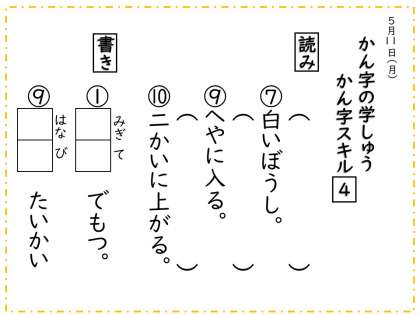 5月11日(月)
かん字の学しゅう
かん字スキル 4
読み
⑦白いぼうし。
( )
⑨へやに入る。
( )
⑩二かいに上がる。
( )
書き
①
みぎ て
でもつ。
⑨
はな び
たいかい